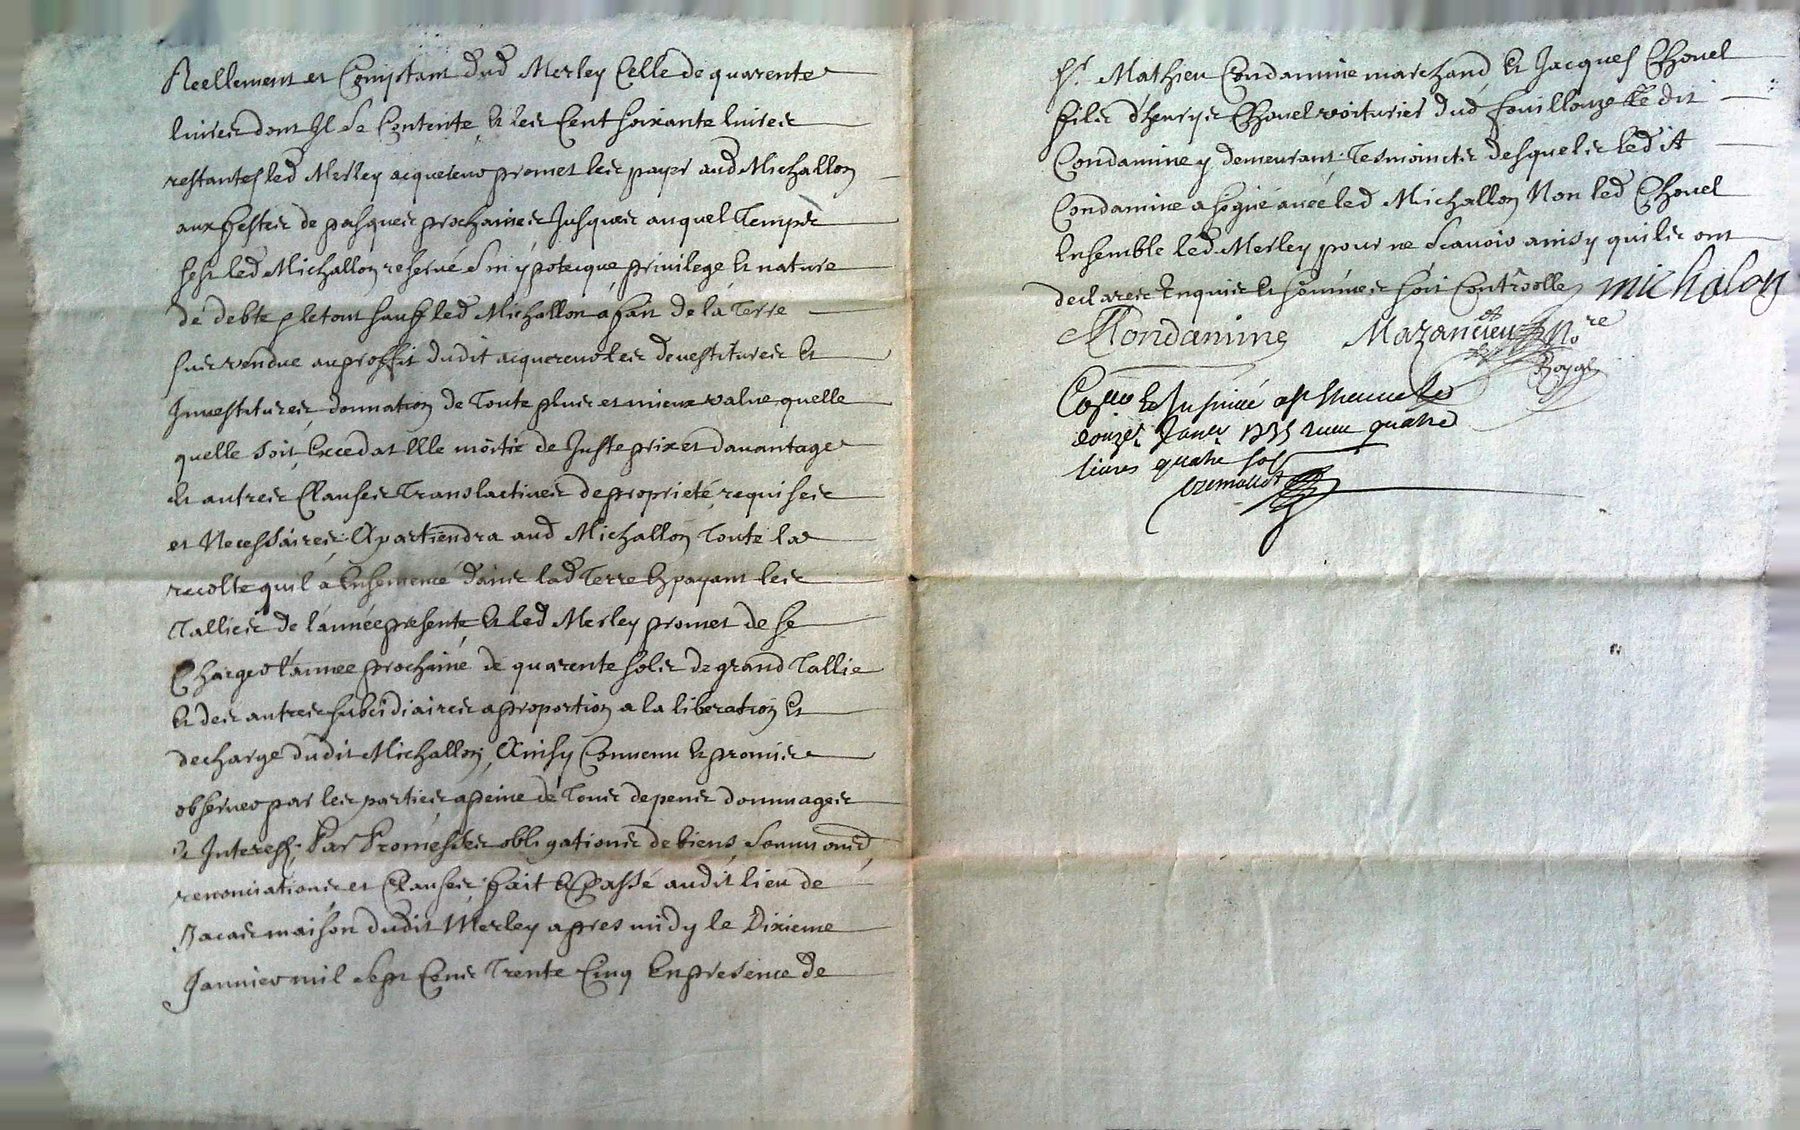 Reellement et Comptant dud Merley Celle de quarente
livres dont Il se Contente, et les Cent soixante livres
restantes led Merley acquereur promet les payer aud Michallon
aux festes de pasques prochaines Jusques auquel Temps
sest led Michallon reservé son ypotecque privilege et nature
de debte, le tout sauf led Michallon a fait de la Terre
sus vendue au proffit dudit acquereur les devestitures et
Investitures, donnation de Toute plus et mieux value quelle
quelle soit, Exceda t Elle moitié de Juste prix et davantage
et autres Clauses Translactives de proprieté, requises
et Necessaires, Apartiendra aud Michallon Toute la
recolte quil a Ensemencé dans lad Terre En payant les
Tallies de l'année presente, et led Merley promet de se
Charger l'annee prochaine de quarente sols de grand Tallie
et des autres subcidiaires a proportion a la liberation et
decharge dudit Michallon, Ainsy Convenu et promis
observer par les parties a peine de Tous depens dommages
et Interest, Par Promesses obligations de biens, soumons,
renonciations et Clauses, fait et Passé audit lieu de
maison dudit Merley apres midy le Dixieme
Janvier mil sept Cens Trente Cinq En presence de
Sr Mathieu Condamine marchand, et Jacques Chovel
fils d'henrys Chovel voiturier dud fouillouze le dit
Condamine y demeurant Tesmoins desquels ledit
Condamine a signé avec led Michallon Non led Chovel
Ensemble led Merley pour ne scavoir ainsy quils ont
declarés Enquis et sommés soit Controollé michalon
Condamine Mazancieu Nore
Royal
Con et Insinué a St
douze Janer 1735 receu quatre
livres quatre sols